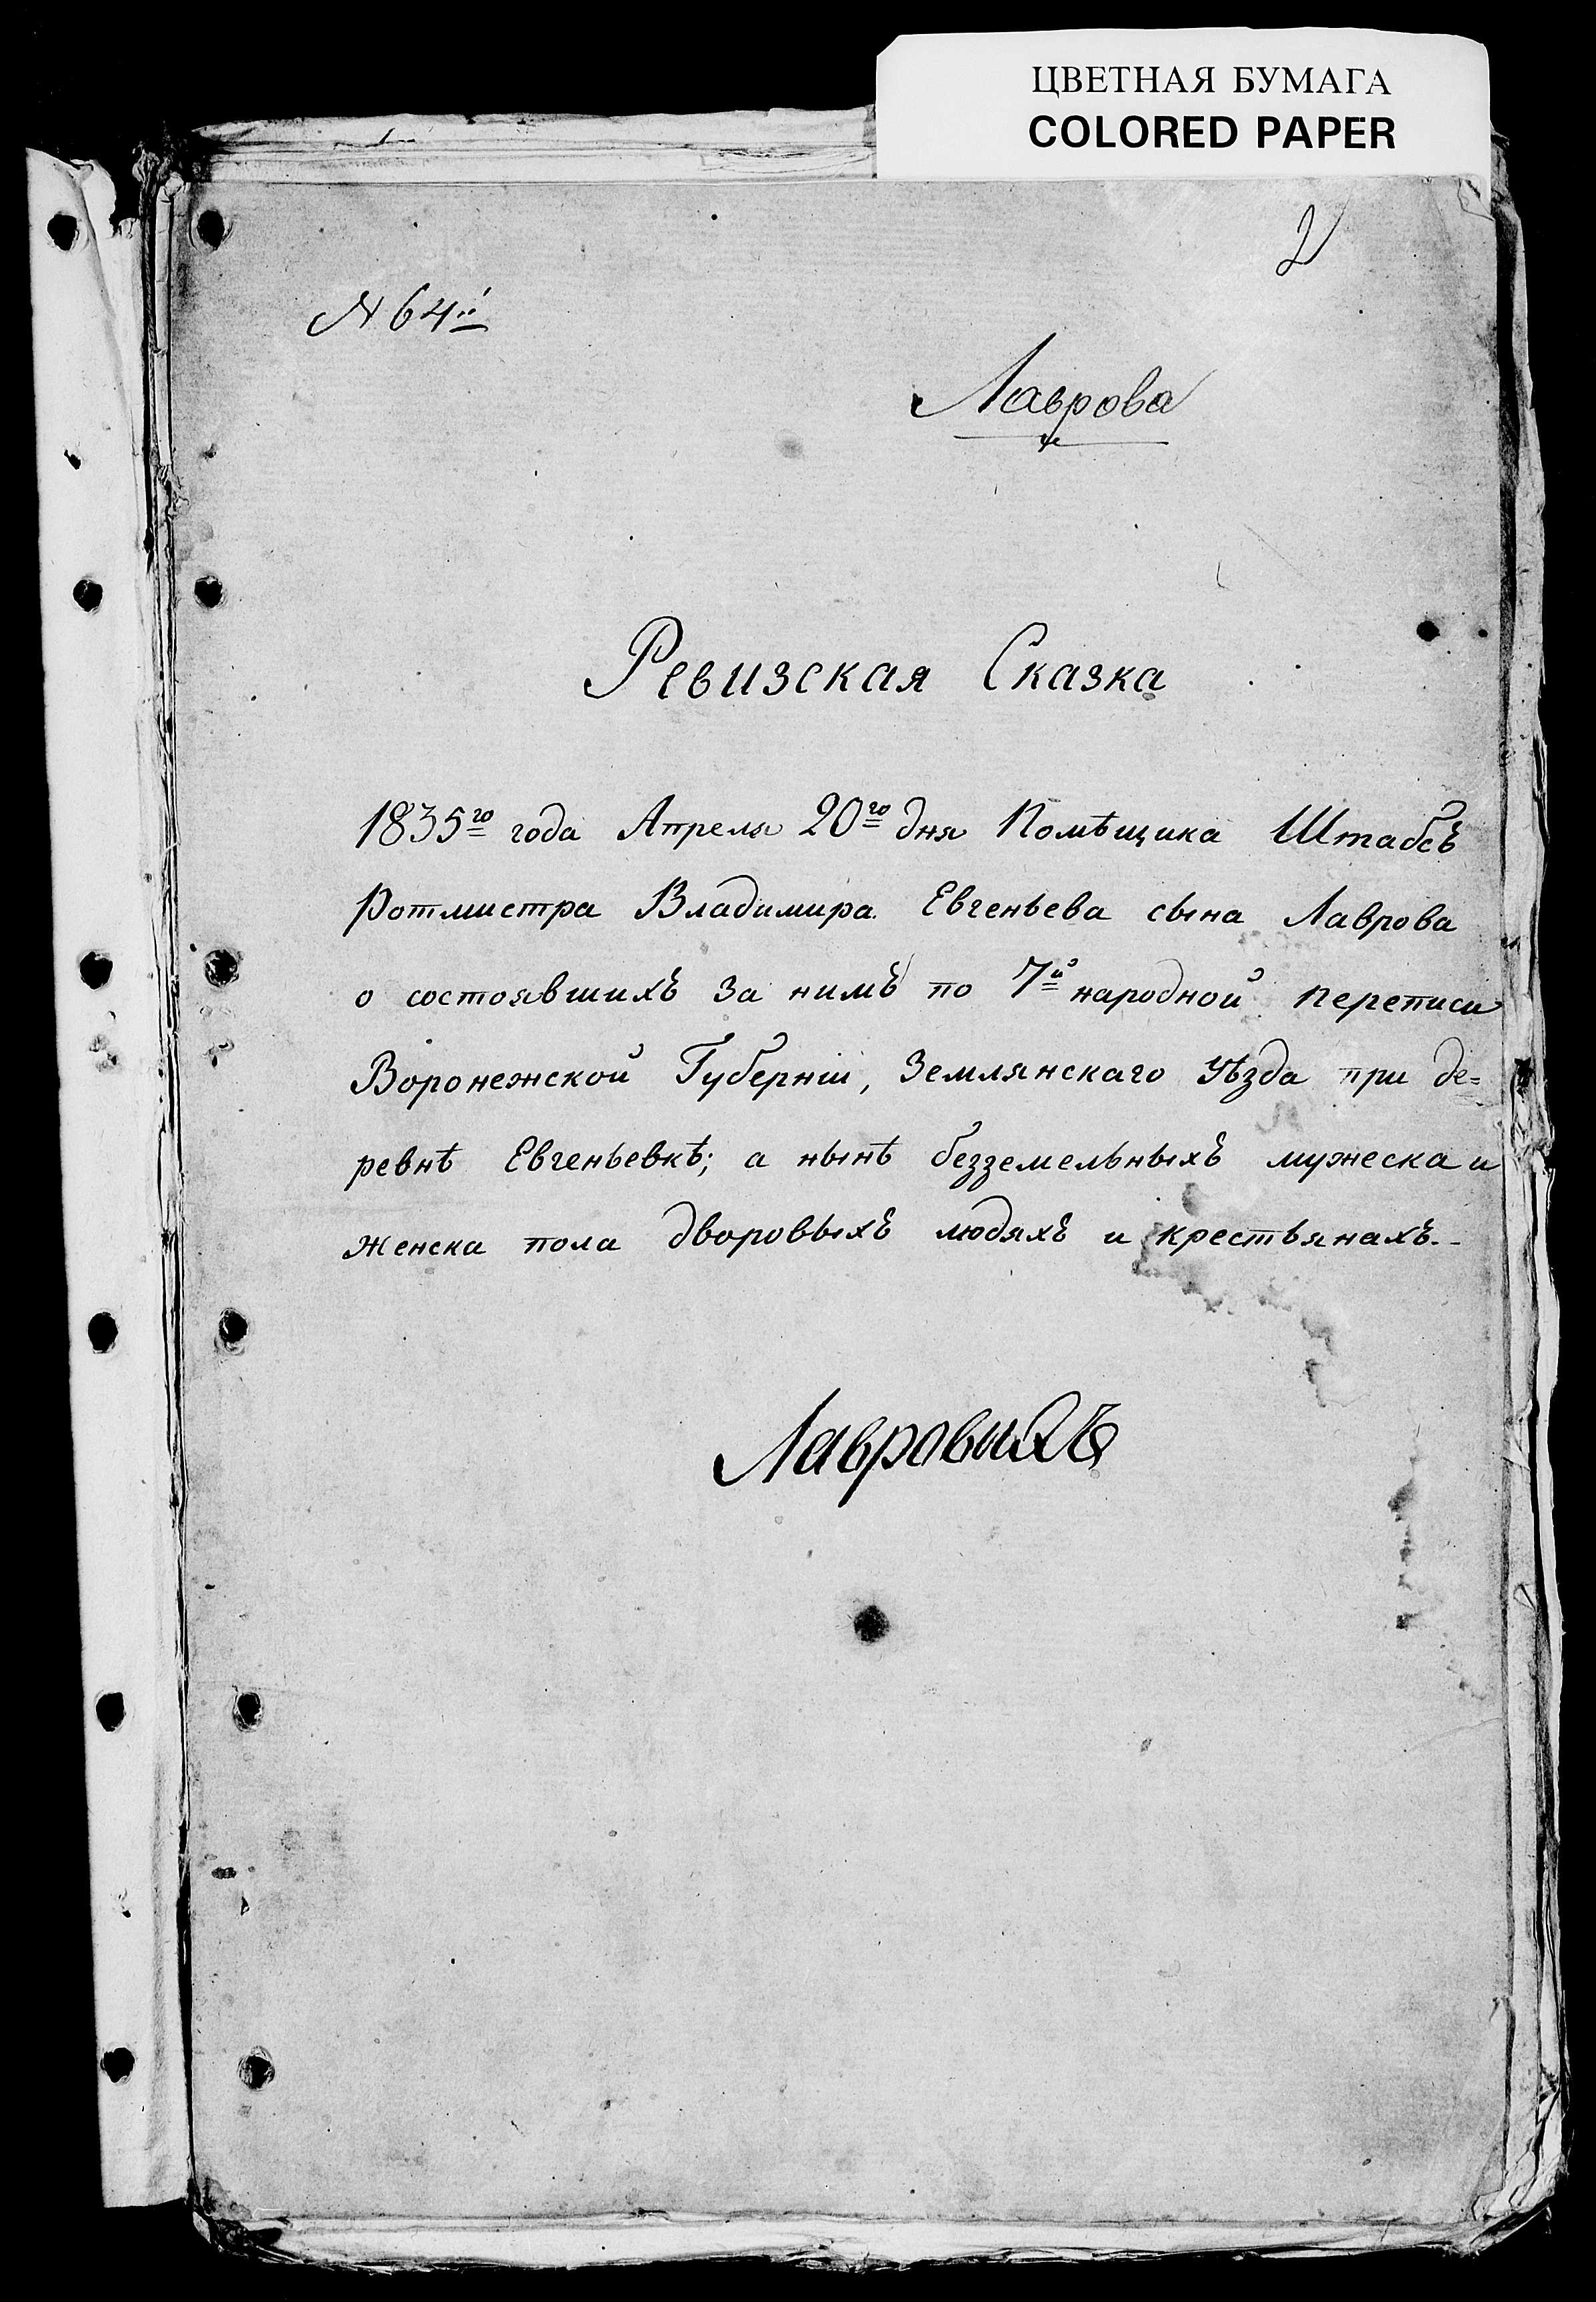 ЦВЕТНАЯ БУМАГА
COLORED PAPER
2
N 64й
Лаврова
Ревизская Сказка
1835го года Апреля 20го дня Помѣщика Штабсъ
Ротмистра Владимира Евгеньева сына Лаврова
о состоявшихъ за нимъ по 7й народной переписи
Воронежской Губерніи, Землянскаго уѣзда при де=
ревнѣ Евгеньевкѣ; а нынѣ безземельныхъ мужеска и
женска пола дворовыхъ людяхъ и крестьянахъ.-